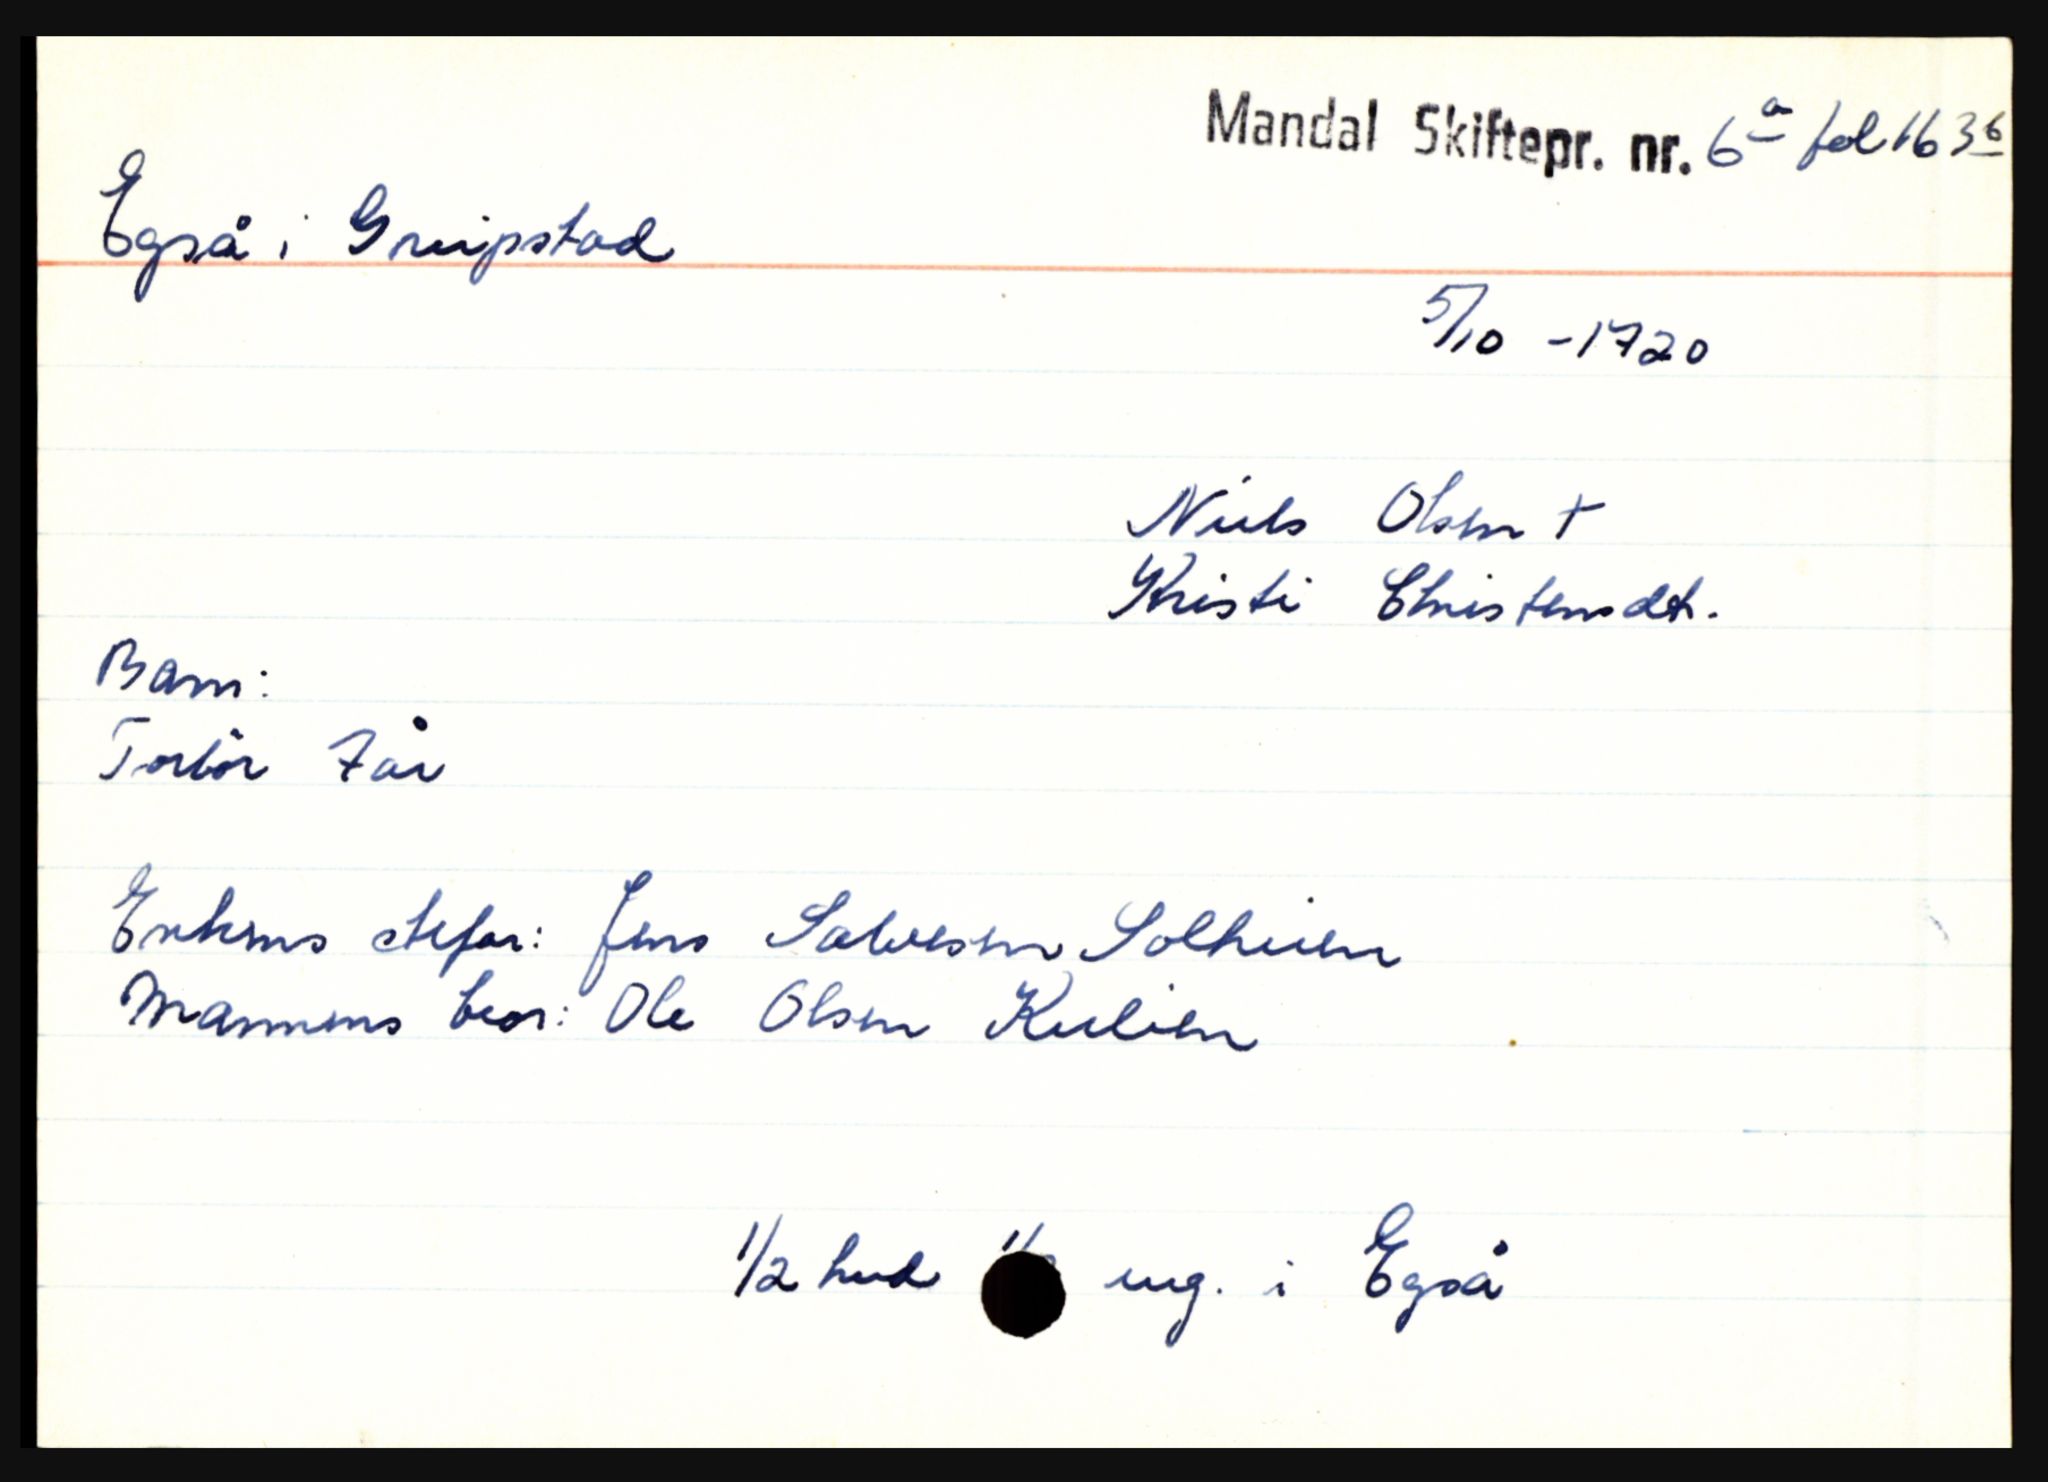 Mandal Skiftepr. nr. 6a fol 163b
Egså i Greipstad
5/10 - 1720
Niels Olsen +
Kristi Christensdtr.
Barn:
Torbör 7 år
Enkens stefar: Jens Salvesen Solheien
Mannens bror: Ole Olsen Kulien
1/2 hud eng. i Egså